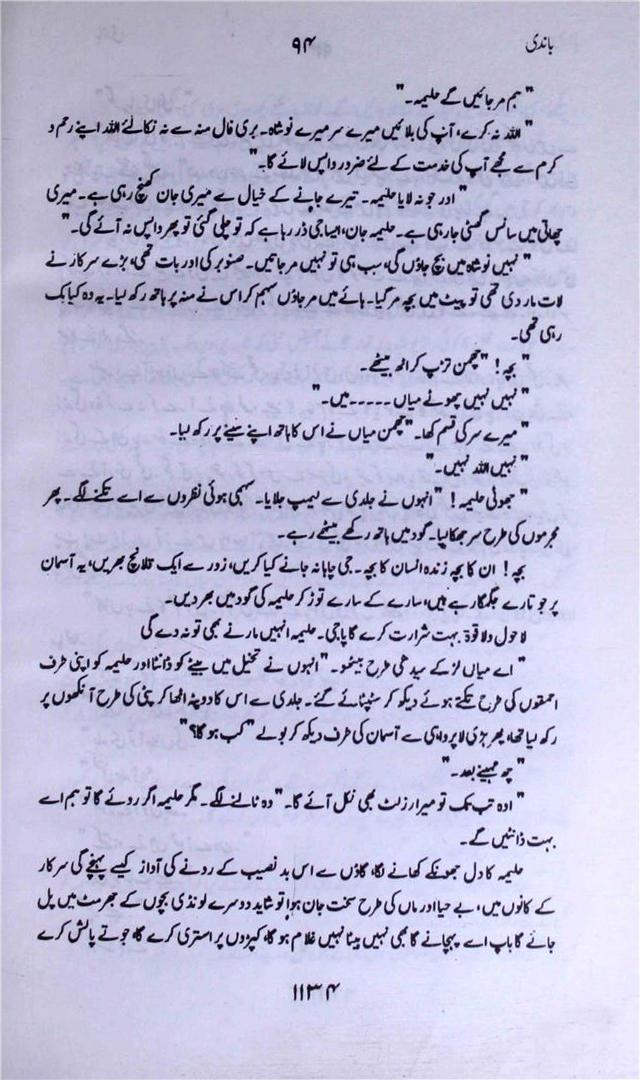 باندی
۹۴
"ہم مر جائیں گے حلیمہ۔"
"اللہ نہ کرے، آپ کی بلائیں میرے سر میرے نوشاہ۔ بری فال منہ سے نہ نکالئے اللہ اپنے رحم و
کرم سے مجھے آپ کی خدمت کے لئے ضرور واپس لائے گا۔"
"اور جو نہ لایا حلیمہ۔ تیرے جانے کے خیال سے میری جان کھنچ رہی ہے۔ میری
چھاتی میں سانس گھٹی جا رہی ہے۔ حلیمہ جان، ایسا جی ڈر رہا ہے کہ تو چلی گئی تو پھر واپس نہ آئے گی۔"
"نہیں نوشاہ میں بچ جاؤں گی، سب ہی تو نہیں مر جاتیں۔ صنوبر کی اور بات تھی، بڑے سرکار نے
لات مار دی تھی تو پیٹ میں بچہ مر گیا۔ ہائے میں مر جاؤں سہم کر اس نے منہ پر ہاتھ رکھ لیا۔ یہ وہ کیا بک
رہی تھی۔
"بچہ! "چھمن تڑپ کر اٹھ بیٹھے۔
"نہیں نہیں چھوٹے میاں ۔۔۔۔۔ میں۔"
"میرے سر کی قسم کھا۔ "چھمن میاں نے اس کا ہاتھ اپنے سینے پر رکھ لیا۔
"نہیں اللہ نہیں۔"
"جھوٹی حلیمہ! "انہوں نے جلدی سے لیمپ جلایا۔ سہمی ہوئی نظروں سے اسے تکنے لگے۔ پھر
مجرموں کی طرح سر جھکا لیا۔ گود میں ہاتھ رکھے بیٹھے رہے۔
بچہ! ان کا بچہ زندہ انسان کا بچہ۔ جی چاہا نہ جانے کیا کریں، زور سے ایک قلانچ بھریں، یہ آسمان
پر جو تارے جگمگا رہے ہیں، سارے کے سارے توڑ کر حلیمہ کی گود میں بھر دیں۔
لاحول ولا قوۃ بہت شرارت کرے گا پاجی۔ حلیمہ انہیں مارنے بھی تو نہ دے گی
"اے میاں لڑکے سیدھی طرح بیٹھو۔ "انہوں نے تخیل میں بیٹے کو ڈانٹا اور حلیمہ کو اپنی طرف
احمقوں کی طرح تکتے ہوئے دیکھ کر سٹپٹائے گئے۔ جلدی سے اس کا دوپٹہ اٹھا کر پٹی کی طرح آنکھوں پر
رکھ لیا تھا، پھر بڑی لا پروا ہی سے آسمان کی طرف دیکھ کر بولے "کب ہو گا؟"
"چھ مہینے بعد۔"
"اوہ تب تک تو میرا رزلٹ بھی نکل آئے گا۔ "وہ ٹالنے لگے۔ مگر حلیمہ اگر روئے گا تو ہم اسے
بہت ڈانٹیں گے۔
حلیمہ کا دل جھونکے کھانے لگا، گاؤں سے اس بد نصیب کے رونے کی آواز کیسے پہنچے گی سرکار
کے کانوں میں، بے حیا اور ماں کی طرح سخت جان ہوا تو شاید دوسرے لونڈی بچوں کے جھرمٹ میں پل
جائے گا باپ اسے پہچانے گا بھی نہیں بیٹا نہیں غلام ہو گا، کپڑوں پر استری کرے گا، جوتے پالش کرے
۱۱۳۴